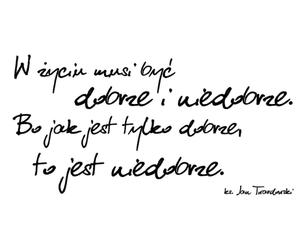 W życiu musi być
dobrze i niedobrze.
Bo jak jest tylko dobrze,
to jest niedobrze.
ks. Jan Twardowski